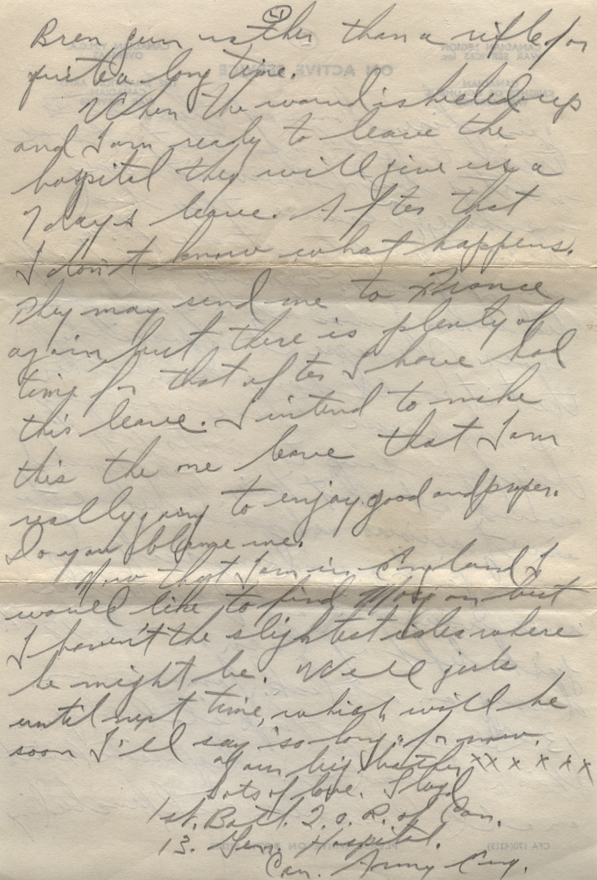 ④
Bren gun rather than a rifle for
quite a long time.
When the wound is healed up
and I am ready to leave the
hospital they will give us a
7 days leave. After that
I don't know what happens.
They may send me to France
again but there is plenty of
time for that after I have had
this leave. I intend to make
this the one leave that I am
really going to enjoy good and proper.
Do you blame me.
Now that I am in England I
would like to find but
I haven't the slightest idea where
he might be. Well girls
until next time, which will be
soon I'll say "so long" for now.
Your big brother xx x x x x
Lots of love.
1st. Batt. Q. O. R. of Can.
13. Gen. Hospital.
Can. Army Eng.